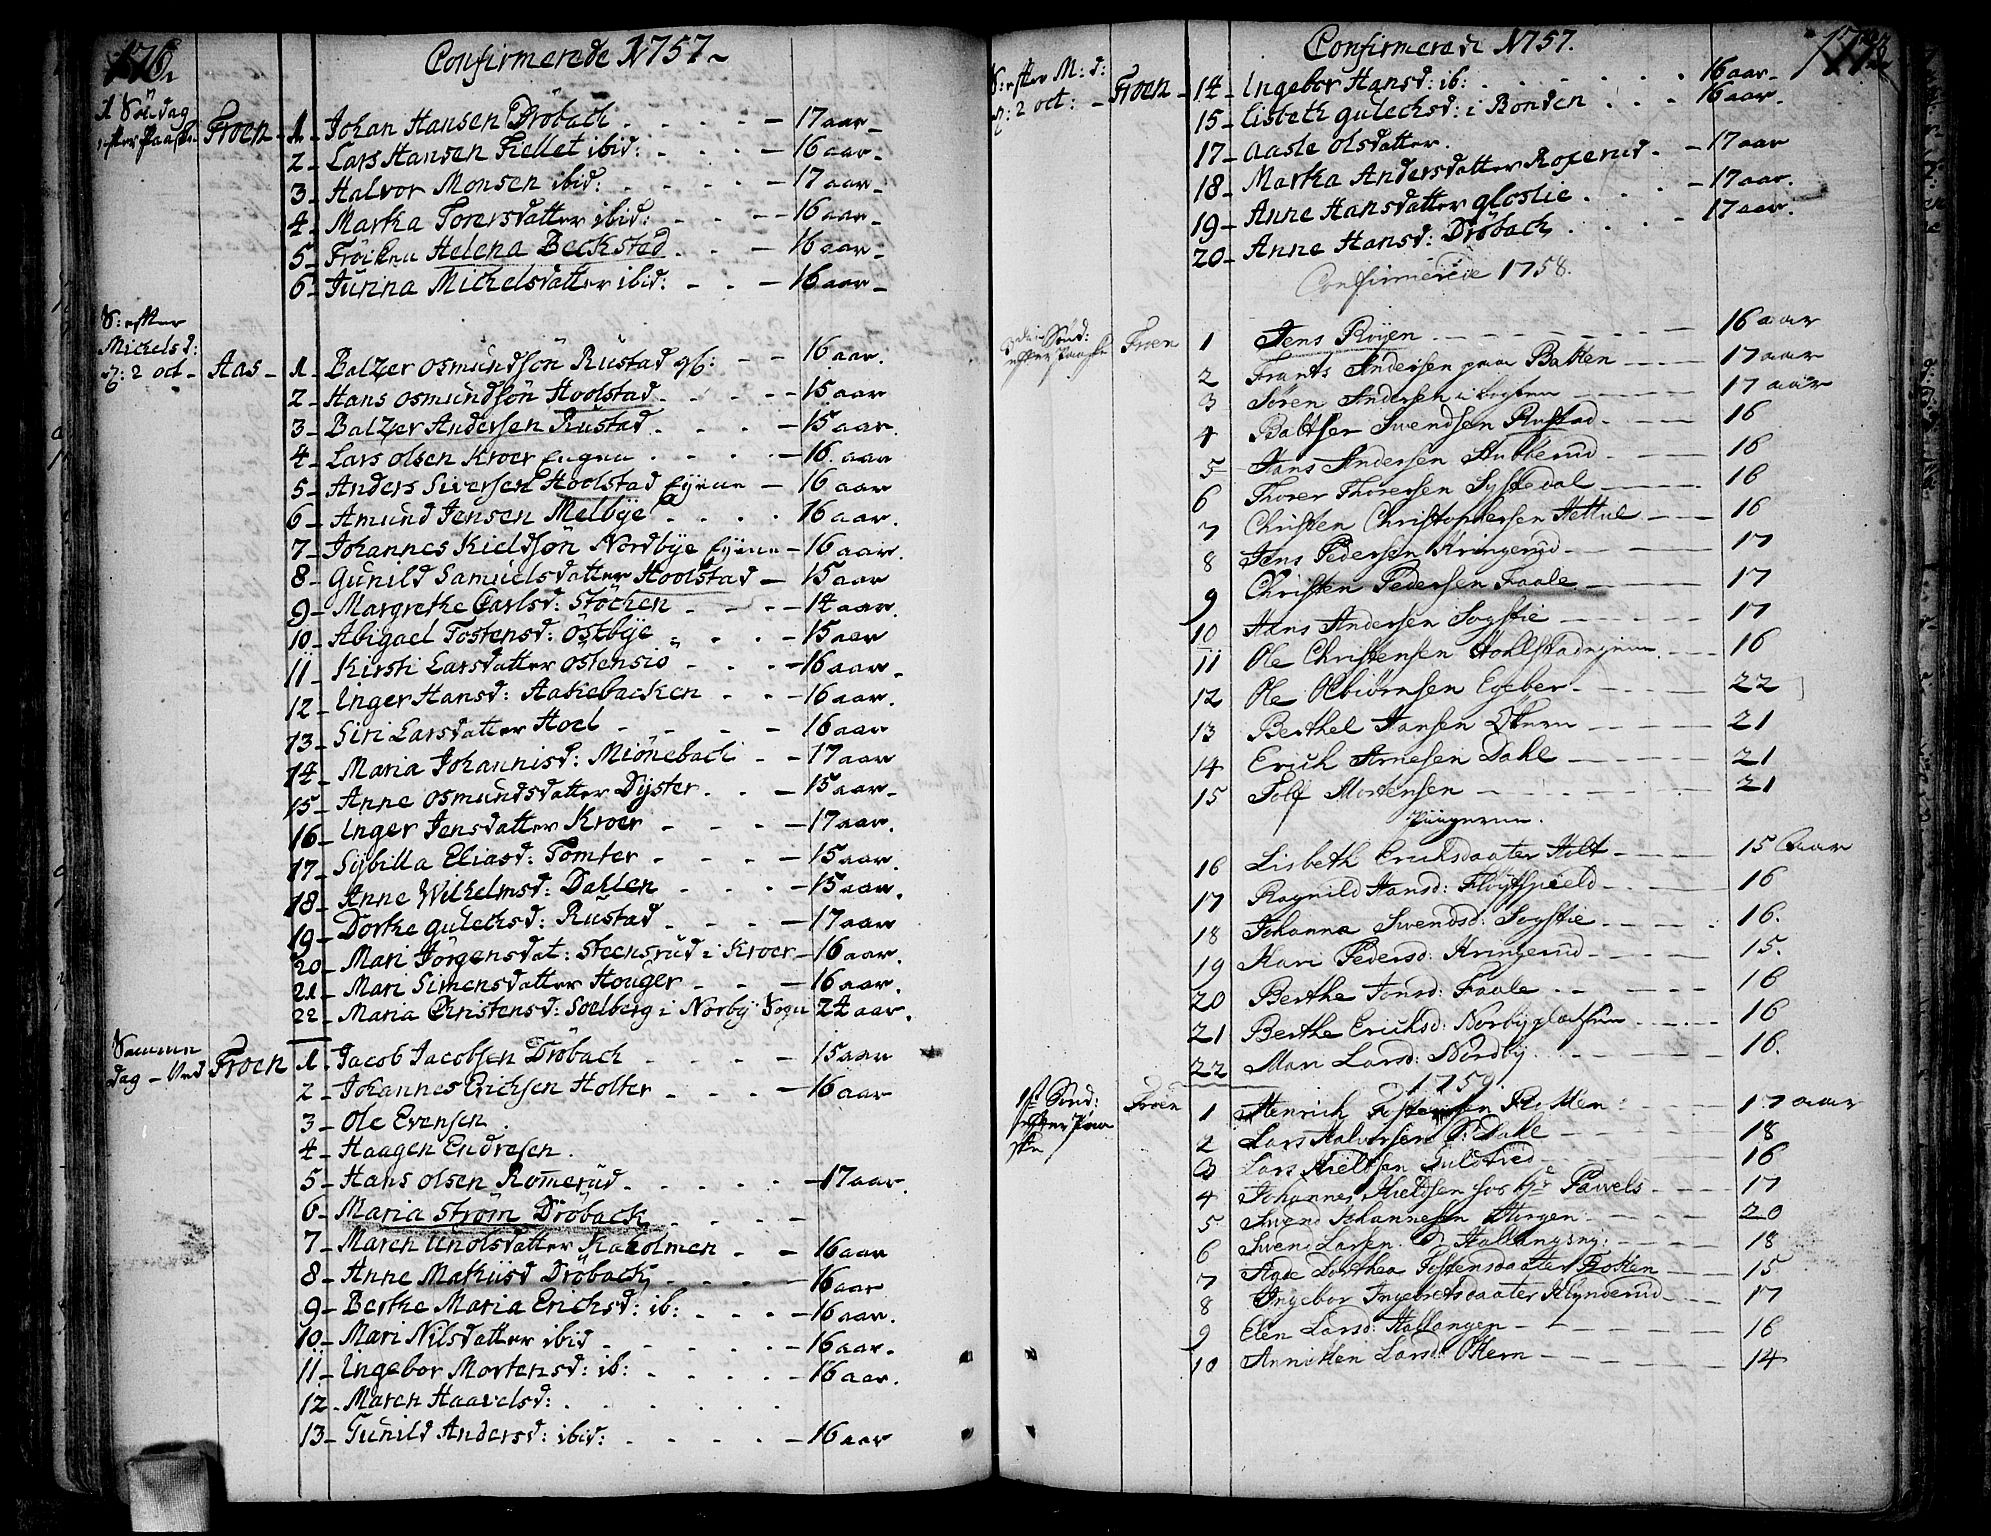 176.
Confirmerede 1757
1 Söndag efter Paaske Froen 1 Johan Hansen Dröbach 17 aar
2 Lars Hansen Fiellet ibid: 16 aar
3 Halvor Monsen ibid: 17 aar
4 Martha Torersdatter ibid: 16 aar
5 Fröiken Helena Beckstad 16 aar
6 Jurina Michelsdatter ibid: 16 aar
S: efter Michelsd: 2 oct Aas 1 Balzer Osmundsön Rustad 16 aar.
2 Hans Osmundsön Hoolstad 15 aar
3 Balzer Andersen Rustad 15 aar.
4 Lars Olsen Kroer 16 aar
5 Anders Siversen Hoolstad Eyene 16 aar
6 Amund Jensen Melbye 16 aar.
7 Johannes Kieldsön Nordbye Eyene 16 aar.
8 Gunild Samuelsdatter Hoolstad 15 aar
9 Margrethe Carlsd: Stöcken 14 aar.
10 Abigael Tostensd: Östbye 15 aar
11 Kirsti Larsdatter Östensiö 16 aar.
12 Inger Hansd: Aakebacken 16 aar.
13 Siri Larsdatter Hoel 16 aar
14 Maria Johannisd: Miönebach 17 aar
15 Anne Osmundsdatter Dyster 15 aar
16 Inger Jensdatter Kroer 17 aar.
17 Sybilla Eliasd: Tomter 15 aar.
18 Anne Wilhelmsd: Dahlen 15 aar.
19 Dorthe Gulechsd: Rustad 17 aar.
20 Mari Jörgensdat: Steensrud i Kroer 16 aar.
21 Mari Simensdatter Houger 16 aar.
22 Maria Christensd: Soelberg i Norby Sogn 24 aar.
Samme dag Ved Froen 1 Jacob Jacobsen Dröbach 15 aar
2 Johannes Erichsen Holter 16 aar
3 Ole Evensen
4 Haagen Endresen
5 Hans Olsen Romerud 17 aar.
6 Maria Strøm Dröback
7 Maren Knolsdatter Kaholmen 16 aar
8 Anne Makiisd Dröback 16 aar
9 Berthe Maria Erichsd: ib: 16 aar.
10 Mari Nilsdatter ibid 16 aar.
11 Ingebor Mortensd: ib: 16 aar.
12 Maren Haavelsd:
13 Gunild Andersd: ibid: 16 aar
Confirmerede 1757.
S: efter M: d: 2 oct: Froen 14 Ingebor Hansd: ib: 16 aar
15 Lisbeth Gulechsd: i Bonden 16 aar.
17 Aasle Olsdatter
18 Martha Andersdatter Roxerud 17 aar
19 Anne Hansdatter Gloslie 17 aar.
20 Anne Hansd: Dröbach 17 aar.
Confirmerede 1758.
Sönd: efter Paaske Froen 1 Jens Röyen 16 aar
2 Frants Andersen paa Batten 17 aar
3 Sören Andersen i 17 aar
4 Baltser Svendsen Rustad 16
5 Hans Andersen Hubberud 16
6 Thorer Thorersen 16
7 Christen Christophersen 16
8 Jens Pedersen Kringerud 17
9 Christen Pedersen Faale 17
10 Hans Andersen Sogstie 17
11 Ole Christensen 16
12 Ole Olbiörnsen Egeber 22
13 Berthel Hansen Ottern 21
14 Erich Arnesen Dahl 21
15 Tolf Mortensen 21
Piigerne.
16 Lisbeth Erichsdaater Hilt 15 Aar
17 Ragnild Hansd: Flöytspield 16
18 Johanna Svendsd: Sogstie 16.
19 Kari Pedersd: Kringerud 15.
20 Berthe Jonsd: Faale 16
21 Berthe Erichsd: 16
22 Mari Larsd: Nordby 16.
1759.
1ste Sönd: efter Paaske Froen 1 Henrich Tostensen Rotten 17 aar
2 Lars Halvorsen Dahl 18
3 Lars Kieldsen 16
4 Johannes Kieldsen hos Hr Pawels 17
5 Svend Johannesen 20
6 Svend Laren. Hallangsny: 18
7 Agde Dorthea Tostensdaater Rotten 15
8 Ingebor Ingebretsdaater Klynderud 17
9 Elen Larsd: Hallangen 16
10 Annikken Larsd: Ottern 14